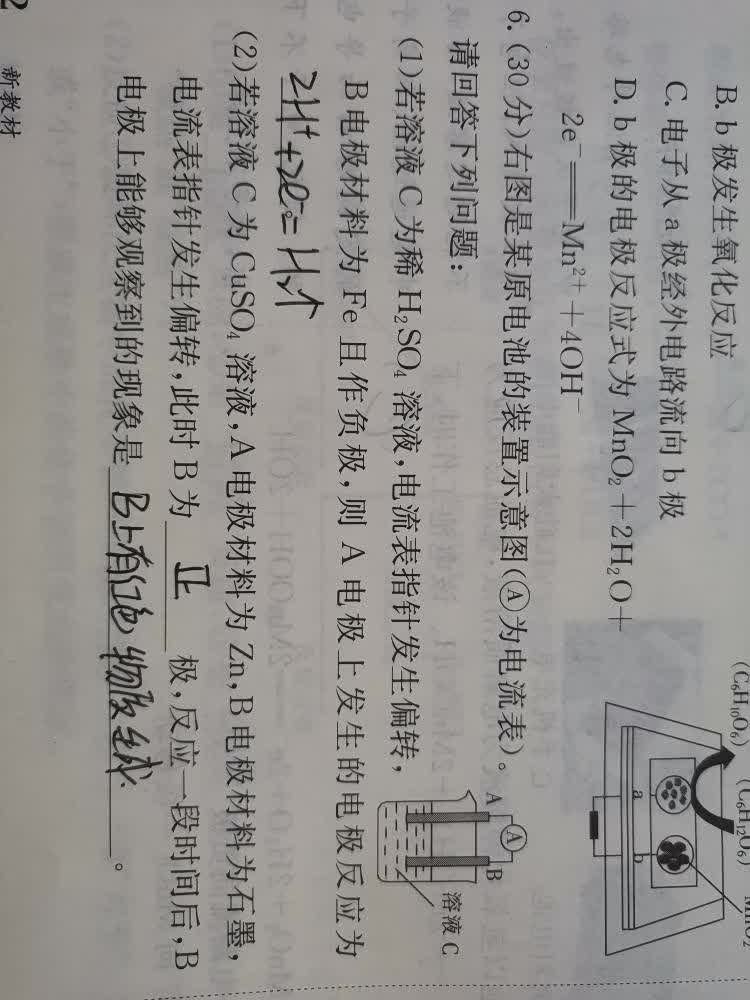 B. b极发生氧化反应
C. 电子从a极经外电路流向b极
D. b极的电极反应式为MnO₂+2H₂O+
2e⁻══Mn²⁺+4OH⁻
(C₆H₁₀O₆)
(C₆H₁₂O₆)
MnO₂
a
b
6. (30分)右图是某原电池的装置示意图(Ⓐ为电流表)。
请回答下列问题:
(1)若溶液C为稀H₂SO₄溶液,电流表指针发生偏转,
B电极材料为Fe且作负极,则A电极上发生的电极反应为
2H⁺+2e⁻=H₂↑
A
A
B
溶液C
(2)若溶液C为CuSO₄溶液,A电极材料为Zn,B电极材料为石墨,
电流表指针发生偏转,此时B为 正 极,反应一段时间后,B
电极上能够观察到的现象是 B上有红色物质生成 。
2 新教材